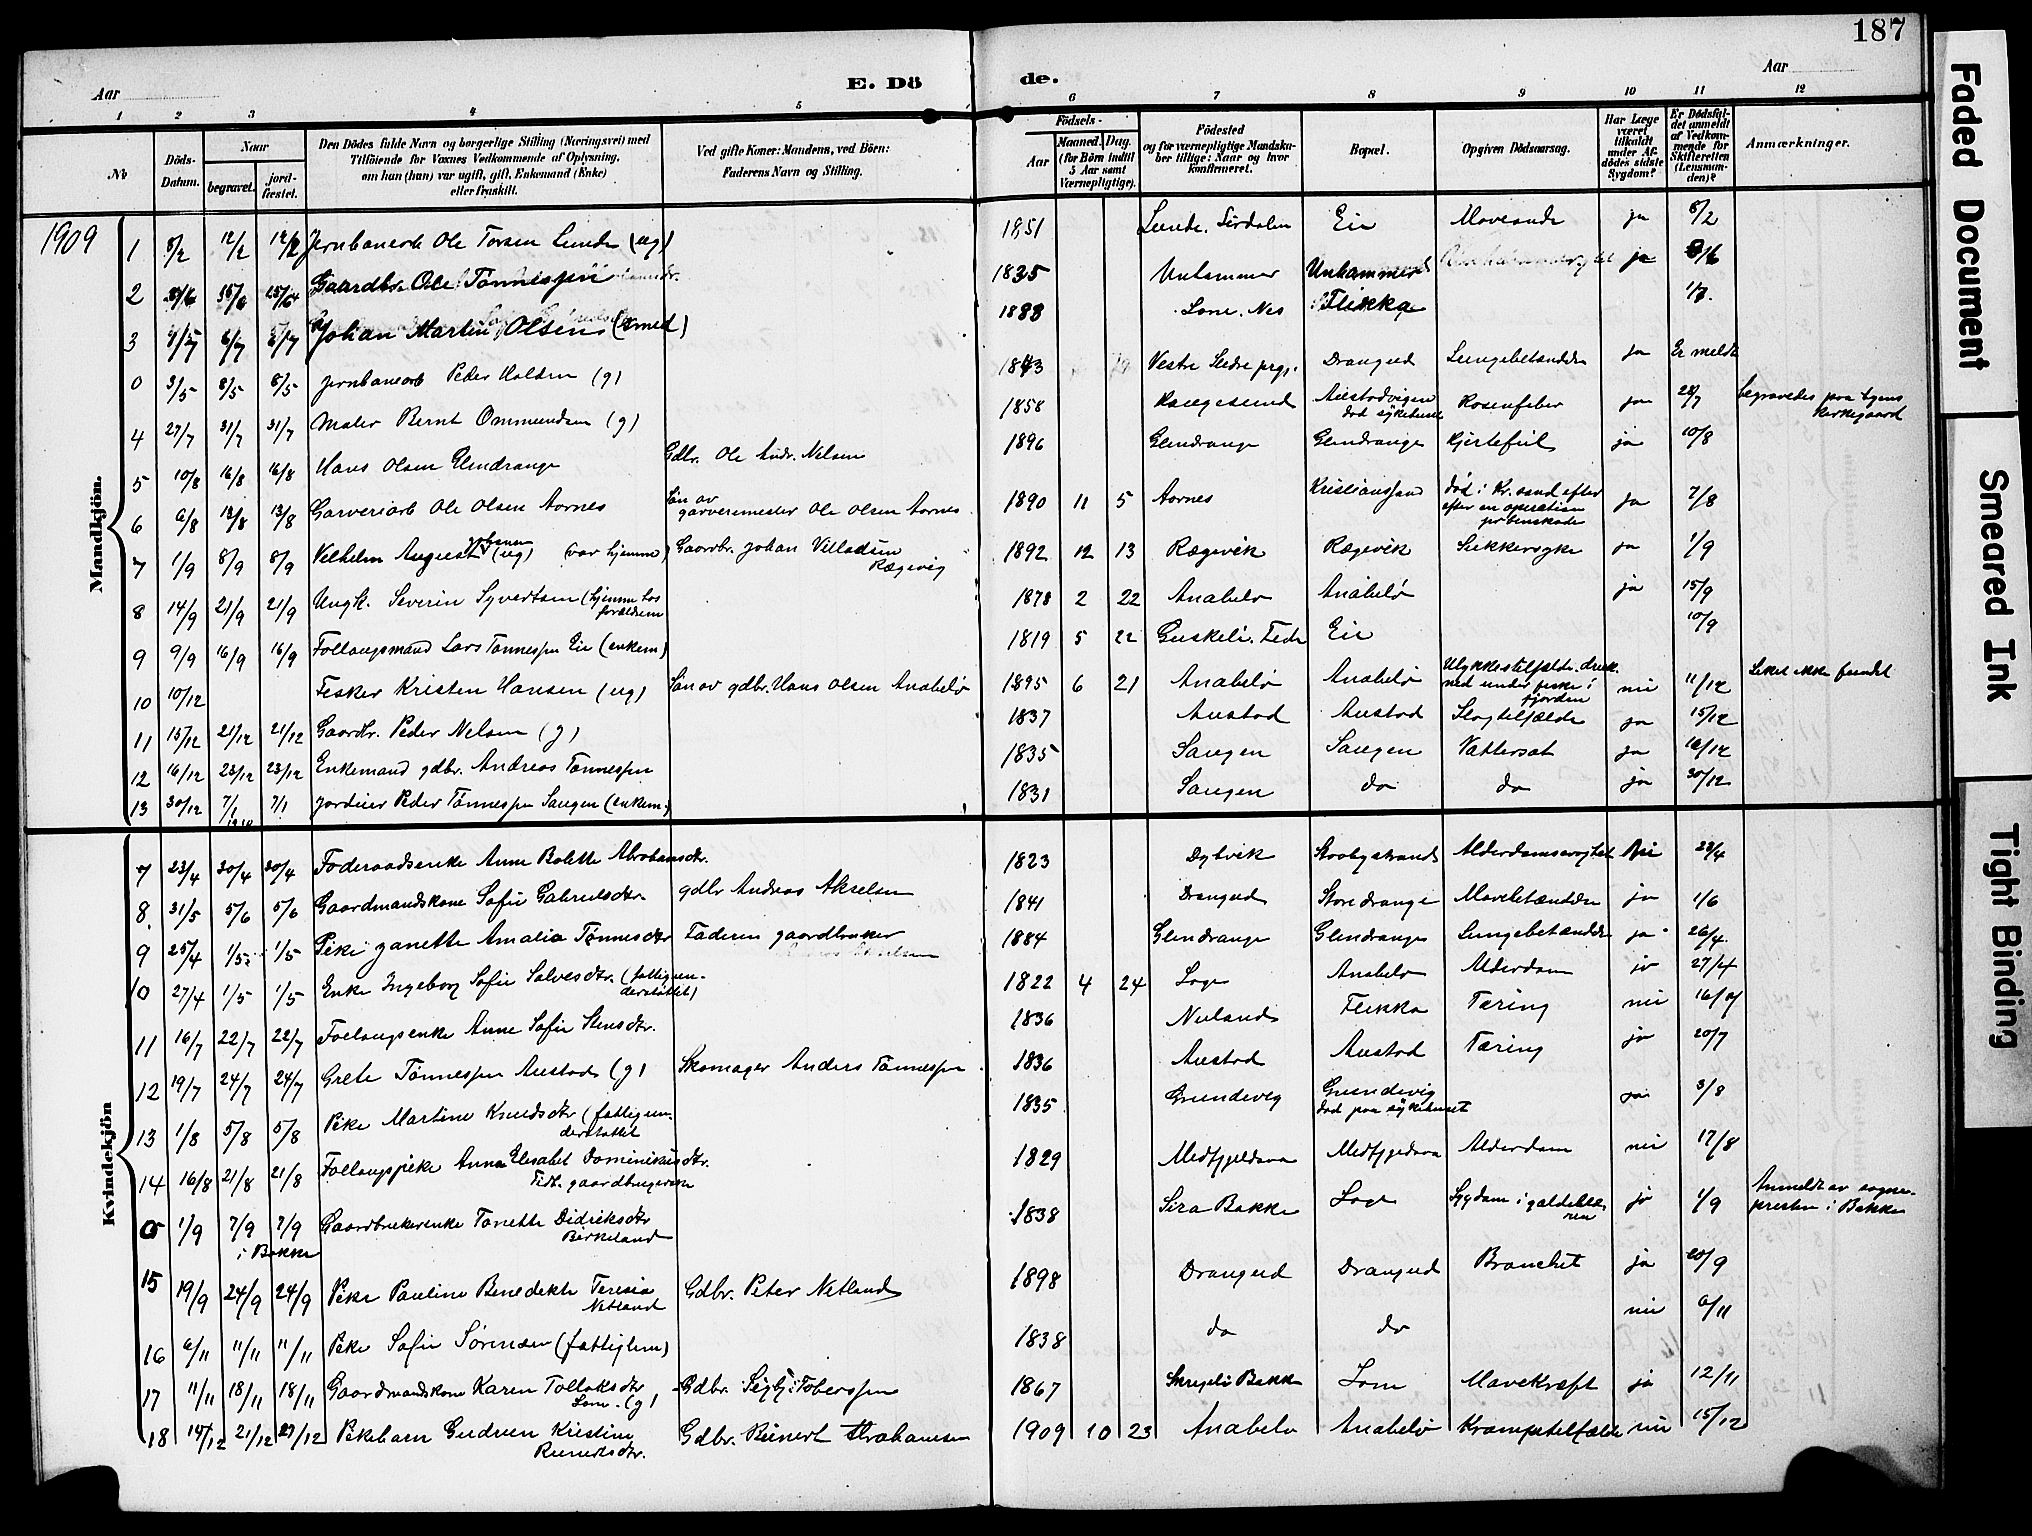 187
Aar
E. Dö
de.
Aar
1 2 3 4 5 6 7 8 9 10 11 12
No
Döds-Datum.
Naar
begravet.
jord-fæstet.
Den Dödes fulde Navn og borgerlige Stilling (Næringsvei) med
Tilföiende for Voxnes Vedkommende af Oplysning,
om han (hun) var ugift, gift, Enkemand (Enke)
eller fraskilt.
Ved gifte Koner: Mandens, ved Börn:
Faderens Navn og Stilling.
Födsels-
Aar
Maaned. Dag.
(for Börn indtil
5 Aar samt
Værnepligtige).
Födested
og for værnepligtige Mandska-
ber tillige: Naar og hvor
konfirmeret.
Bopæl.
Opgiven Dödsaarsag.
Har Læge
været
tilkaldt
under Af-
dödes sidste
Sygdom?
Er Dödsfal-
det anmeldt
af Vedkom-
mende for
Skifteretten
(Lensman-
den)?
Anmærkninger.
1909
Mandkjön.
1 8/2 12/2 12/2 Jernbanearb Ole Torsen Lunde (ug) 1851 Lunde, Sirdalen Eie Mavesaar ja 8/2
2 Gaardbr. Ole Tønnessen 1835 Unhammer Unhammer ja
3 Johan Martin Olsen 1888 Lone, Nes Flikka
0 3/5 8/5 8/5 Jernbanearb Peder Halden (g) 1843 Vestre Slidre prgj. Drangeid Lungebetændelse ja Er meldt
4 27/7 31/7 31/7 Maler Bernt Ommundsen (g) 1858 Haugesund Austadvigen
død sykehuset Rosenfeber ja 28/7 begravedes paa byens
kirkegaard
5 10/8 16/8 16/8 Hans Olsen Glendrange Gdbr. Ole Andr. Nelsen 1896 Glendrange Glendrange Hjertefeil ja 10/8
6 6/8 13/8 13/8 Garveriarb Ole Olsen Aornes Søn av
garvermester Ole Olsen Aornes 1890 11 5 Aornes Kristianssand død i Kr.sand efter
efter en operation
for benskade ja 7/8
7 1/9 8/9 8/9 Vilhelm August Johansen (ug) (var hjemme) Gaardbr. Johan Villadsen
Rægevig 1892 12 13 Rægevik Rægevik Sukkersyke ja 1/9
8 14/9 21/9 21/9 Ungk. Severin Syvertsen (hjemme hos
forældrene 1878 2 22 Anabelø Anabelø ja 15/9
9 9/9 16/9 16/9 Follaugsmand Lars Tønnessen Eie (enkem) 1819 5 22 Guskeli, Feda Eie 10/9
10 10/12 Fisker Kristen Hansen (ug) Søn av gdbr. Hans Olsen Anabelø 1895 6 21 Anabelø Anabelø Ulykkestilfælde, druk-
ned under fiske i
fjorden nei 11/12 Liket ikke fundet
11 15/12 21/12 21/12 Gaardbr. Peder Nelsen (g) 1837 Austad Austad Slagtilfælde ja 15/12
12 16/12 23/12 23/12 Enkemand gdbr. Andreas Tønnessen 1835 Saugen Saugen Vattersot ja 16/12
13 30/12 7/1 7/1 Jordeier Peder Tønnessen Saugen (enkem) 1831 Saugen do do ja 30/12
1910
Kvindekjön
7 23/4 30/4 30/4 Føderaadsenke Anne Bolette Abrahamsdtr. 1823 Dybvik Stoolystrand Alderdomssvaghet Nei 23/4
8 31/5 5/6 5/6 Gaardmandskone Sofie Gabrielsdtr gdbr Andreas Akselsen 1841 Drangeid Storedrange Mavebetændelse ja 1/6
9 25/4 1/5 1/5 Pike Janette Amalia Tønnesdtr Faderen gaardbruker 1884 Glendrange Glendrange Lungebetændelse ja 26/4
10 27/4 1/5 1/5 Enke Ingeborg Sofie Salvesdtr. (fattigun-
derstøttet) 1822 4 24 Loge Anabelø Alderdom ja 27/4
11 16/7 22/7 22/7 Follaugsenke Anne Sofie Stensdtr. 1836 Nuland Flikka Tæring nei 16/7
12 19/7 24/7 24/7 Grete Tønnessen Austad (g) Skomager Anders Tønnessen 1836 Austad Austad Tæring ja 20/7
13 1/8 5/8 5/8 Pike Martine Knudsdtr (fattigun-
derstøttet 1835 Grundevig Grundevig
død paa sykehuset ja 3/8
14 16/8 21/8 21/8 Follaugspike Anna Elisabet Dominikusdtr.
Fidt. gaardbrugerske 1829 Medfjeldaaa Medfjeldaaa Alderdom nei 17/8
0 1/9 7/9 7/9 Gaardbrukerenke Tonette Didriksdtr
Birkeland
i Bakke 1838 Sira Bakke Loge Sygdom i galdeblæ-
ren ja 1/9 Anmeldt av sogne-
presten i Bakke
15 19/9 24/9 24/9 Pike Pauline Benedikte Teresia
Netland Gdbr. Peter Netland 1898 Drangeid Drangeid Bronchit ja 20/9
16 6/11 11/11 11/11 Pike Sofie Sørensen (fattiglem) 1838 do do nei 6/11
17 11/11 18/11 18/11 Gaardmandskone Karen Tollaksdtr
Lone. (g) Gdbr. Sigbj. Tobersen 1867 Skregeli Bakke Lone Mavekræft ja 12/11
18 14/12 21/12 21/12 Pikebarn Gudrun Kristine
Reinertsdtr. Gdbr. Reinert Abrahamsen 1909 10 23 Anabelø Anabelø Krampetilfælde nei 15/12
Faded Document
Smeared Ink
Tight Binding